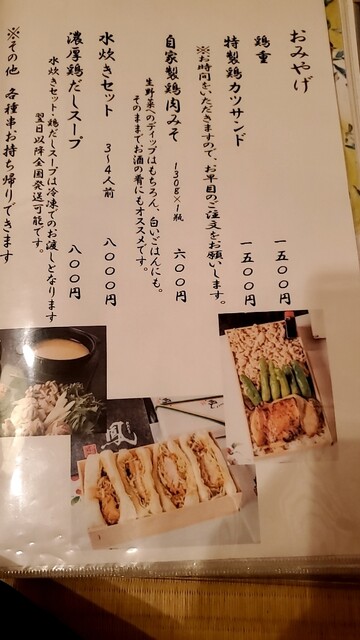 おみやげ
鶏重 一五〇〇円
特製鶏カツサンド 一五〇〇円
※お時間をいただきますので、お早目のご注文をお願いします。
自家製鶏肉みそ 130g×1瓶 六〇〇円
生野菜へのディップはもちろん、白いごはんにも。
そのままでお酒の肴にもオススメです。
水炊きセット 3〜4人前 八〇〇〇円
濃厚鶏だしスープ 八〇〇円
水炊きセット・鶏だしスープは冷凍でのお渡しとなります
翌日以降全国発送可能です。
※その他 各種串お持ち帰りできます
鳳